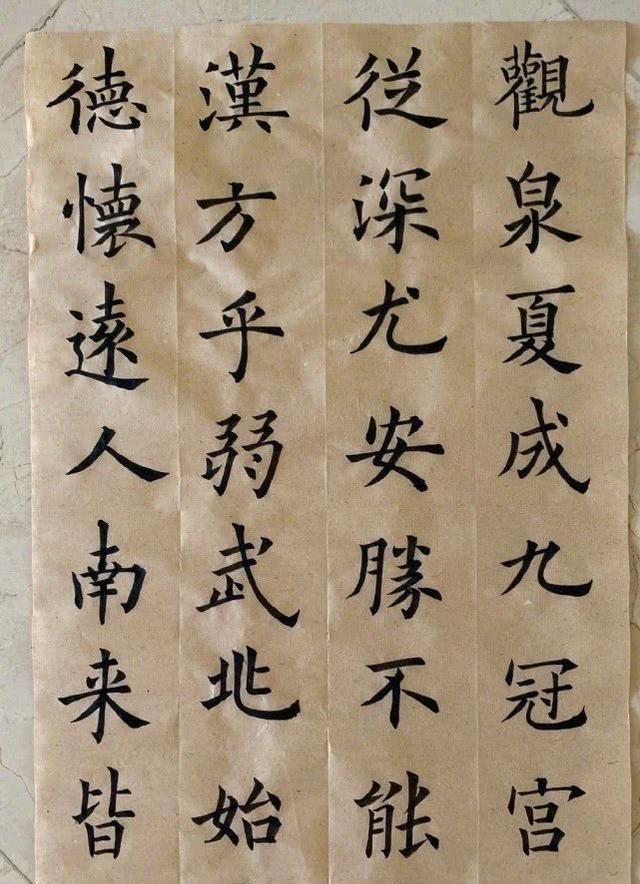 觀泉夏成九冠宮
從深尤安勝不能
漢方乎弱武北始
德懷遠人南来皆